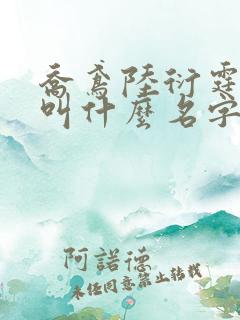 喬鳶陸衍霆
叫什麼名字
阿諾德
未经同意禁止转载